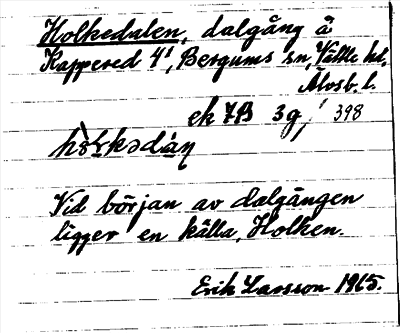 Holkedalen, dalgång å
Kappered 4¹, Bergums sn, Vättle hd,
Älvsb. l.
ek 7B 3g, 398
Vid början av dalgången
ligger en källa, Holken.
Erik Larsson 1965.